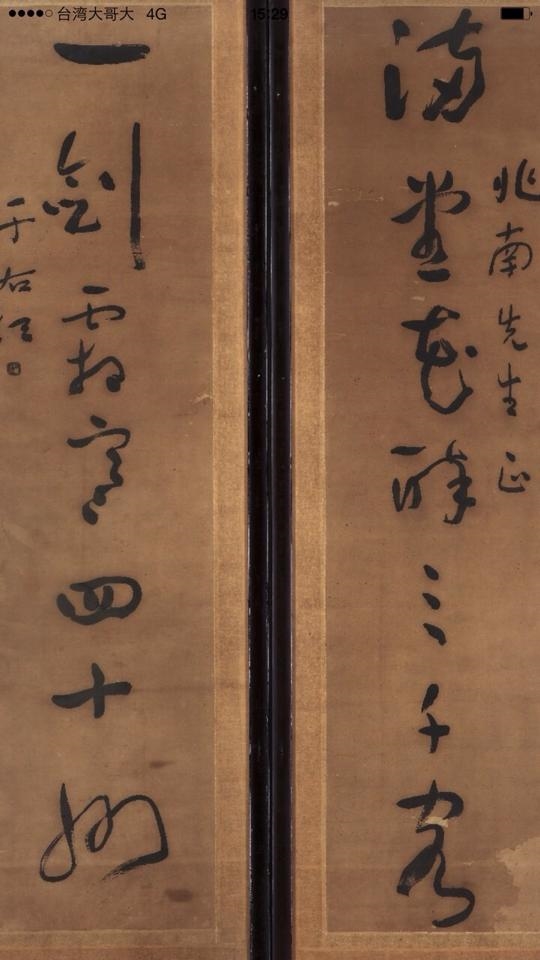 台湾大哥大 4G 15:29
兆南先生正
滿堂花醉三千客
一劍霜寒四十州
于右任